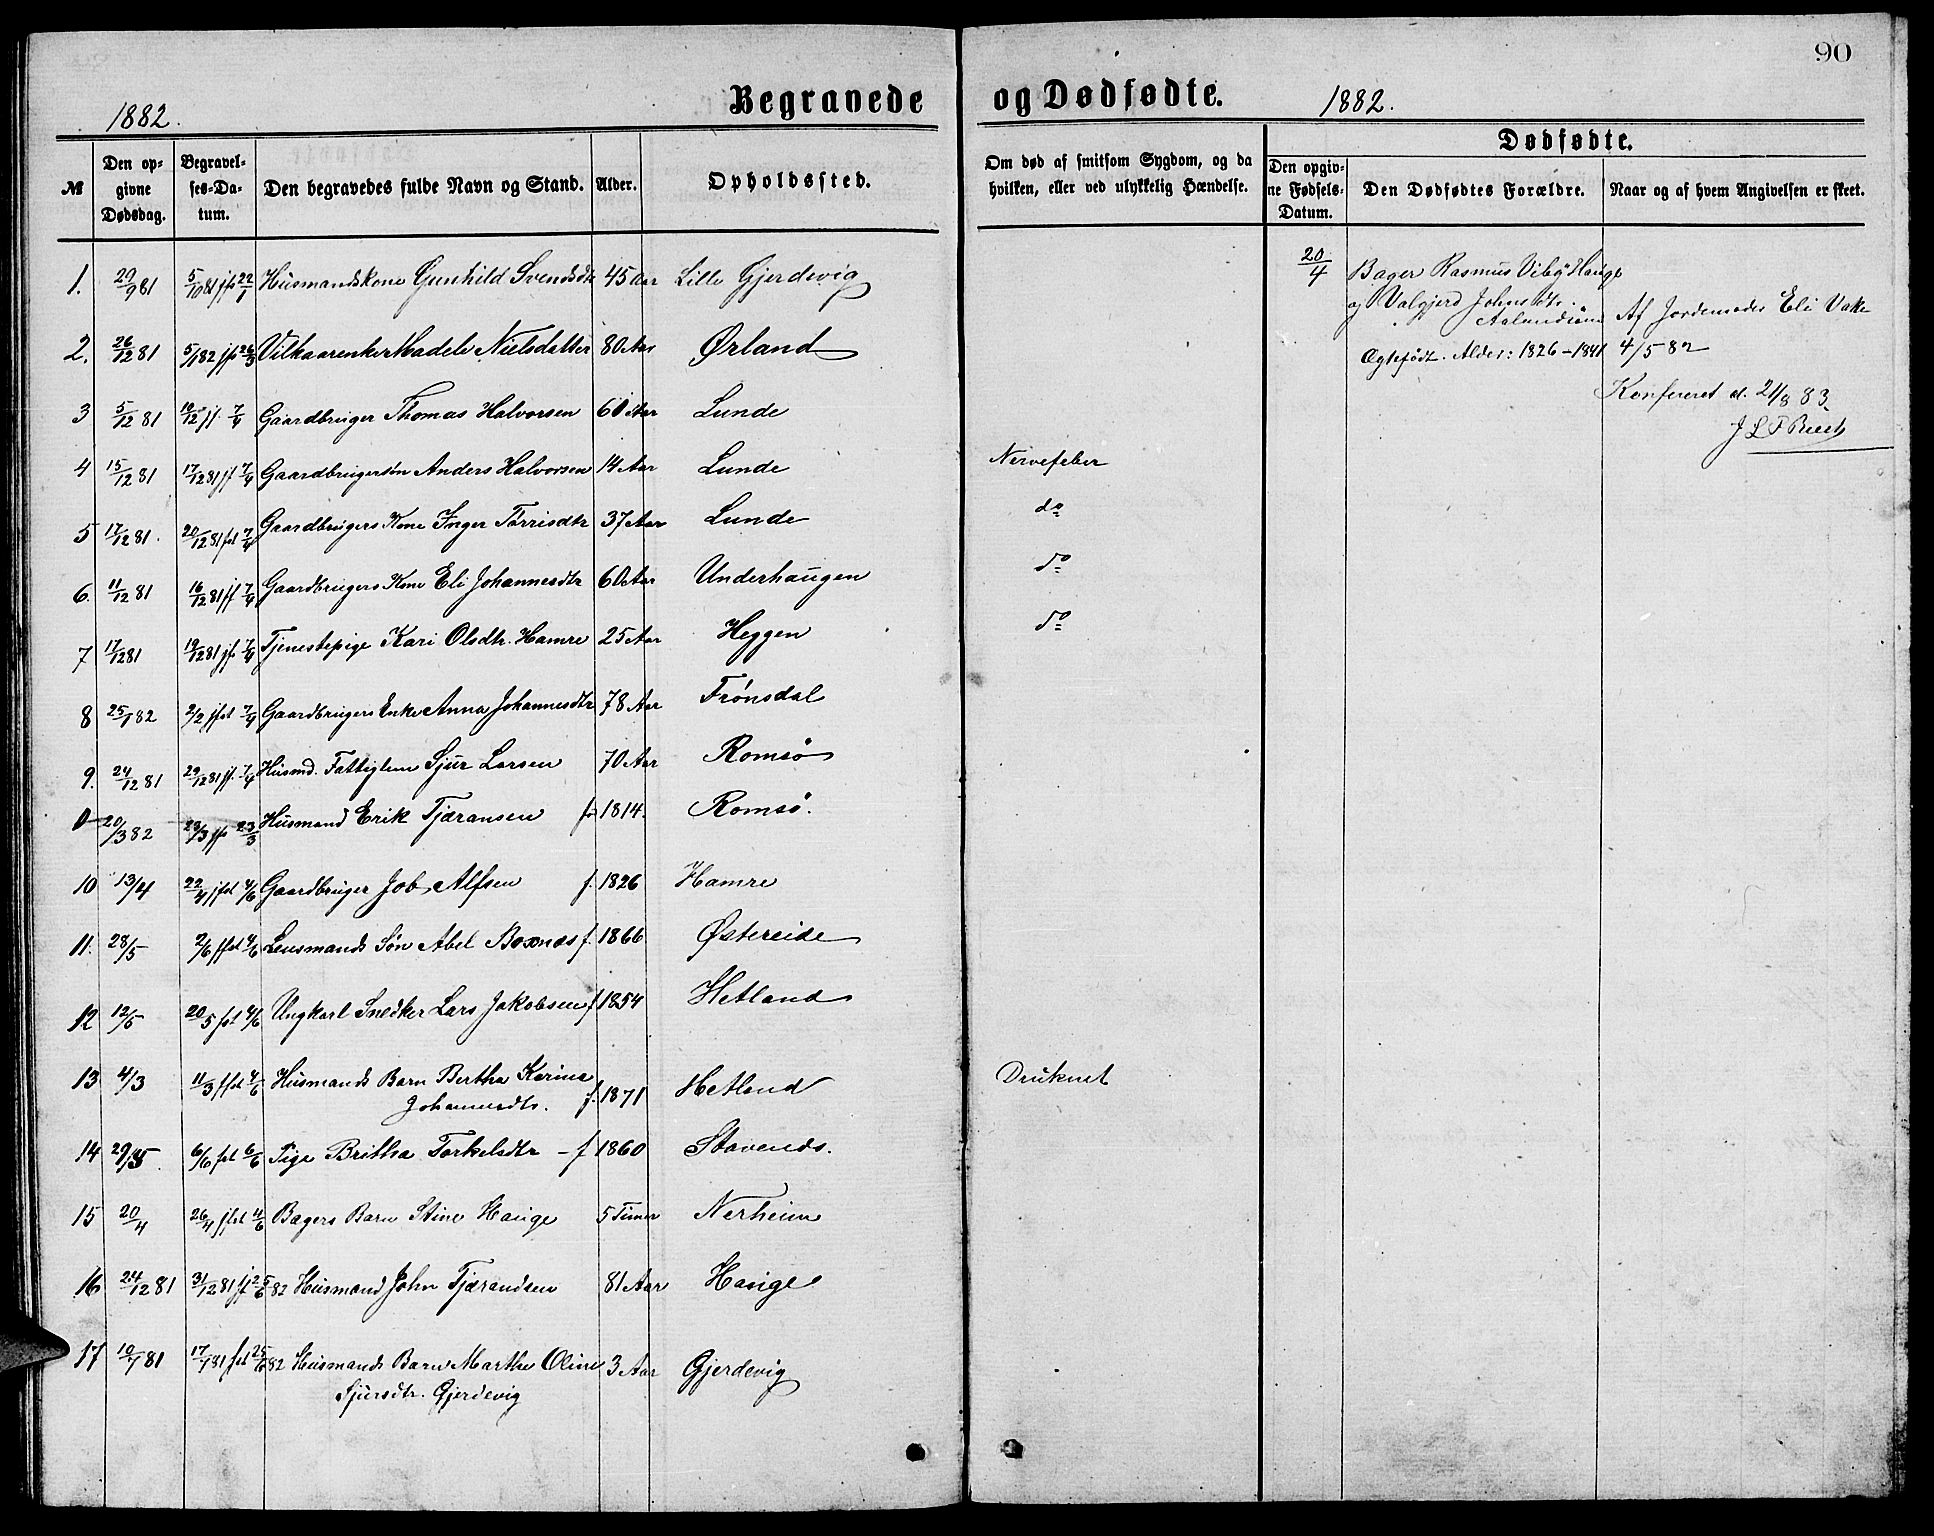 90
1882. Begravede og Dødfødte. 1882.
№ Den opgivne Dødsdag. Begravelses-Datum. Den begravedes fulde Navn og Stand. Alder. Opholdssted. Om død af smitsom Sygdom, og da hvilken, eller ved ulykkelig Hændelse. Dødfødte. Den opgivne Fødsels-Datum. Den Dødfødtes Forældre. Naar og af hvem Angivelsen er skeet.
1. 29/9 81 5/10 81 jfs 22/1 Husmandskone Gunhild Svendsdtr 45 Aar Lille Gjerdevig
2. 26/12 81 5/1 82 jfs 26/3 Vilkaarenke Madele Nielsdatter 80 Aar Ørland
3 5/12 81 jf. 7/4 Gaardbruger Thomas Halvorsen 60 Aar Lunde
4 15/12 81 17/12 81 jf 7/4 Gaardbrugersøn Anders Halvorsen 14 Aar Lunde Nervefeber
5 17/12 81. 20/12 81 fst 7/4 Gaardbrugers Kone Inger Tørrisdtr 37 Aar Lunde do
6. 11/12 81 16/12 81 jf 7/4 Gaardbrugers Kone Eli Johannesdtr 60 Aar Underhaugen do
7 11/12 81 19/12 81 jfs 7/4 Tjenestepige Kari Olsdtr. Hamre 25 Aar Heggen do
8 25/1 82 2/2 jfst 7/4 Gaardbrugers Enke Anna Johannesdtr 78 Aar Frønsdal
9. 24/12 81 29/12 81 jf. 7/4 Husmd. Fattiglem Sjur Larsen 70 Aar Romsø
0 20/3 82 23/3 jfs 23/3 Husmand Erik Tjæransen f 1814. Romsø.
10 13/4 22/4 jfst 4/6 Gaardbruger Job Alfsen f. 1826 Hamre
11. 28/5 2/6 jfst 4/6 Lensmands Søn Abel Boxnæs f. 1866 Østereide
12 12/5 20/5 fst 4/6 Ungkarl Snedker Lars Jakobsen f 1854 Hetland
13 4/3 11/3 jfst 4/6 Husmands Barn Bertha Karina Johannesdtr. f. 1871 Hetland Druknet
14 29/5. 6/6 fst 6/6 Pige Britha Torkelsdtr - f 1860 Stavenæs.
15 20/4 26/4 jfst 4/6 Bagers Barn Stine Hauge 5 Timer Nerheim
16 24/12 81 31/12 81 jf 25/6 82 Husmand John Tjærandsen 81 Aar Hauge
17 10/7 81 17/7 81 fst 25/6 82 Husmands Barn Marthe Oline 3 Aar Gjerdevig
Sjursdtr. Gjerdevig
20/4 Bager Rasmus Viby Hauge
og Valgjerd Johnsdtr.
Aalundsøen Af Jordemoder Eli Vake
Ægtefødt. Alder: 1826 - 1841 4/5 82
Konfereret d. 21/8 83.